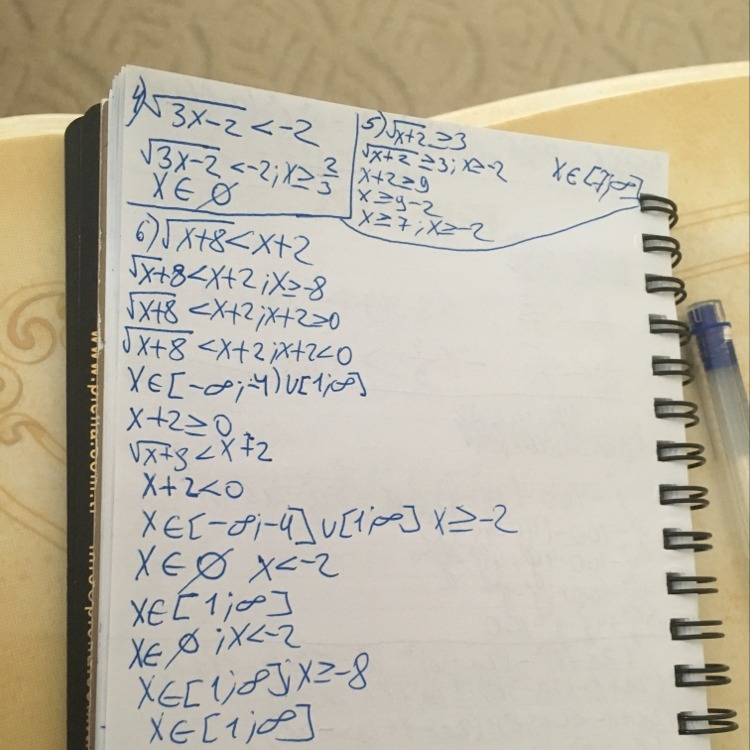 4) √3x-2 < -2
√3x-2 < -2; x ≥ 2/3
x ∈ ∅
5) √x+2 ≥ 3
√x+2 ≥ 3; x ≥ -2
x+2 ≥ 9
x ≥ 9-2
x ≥ 7; x ≥ -2
x ∈ [7; ∞]
6) √x+8 < x+2
√x+8 < x+2; x ≥ -8
√x+8 < x+2; x+2 ≥ 0
√x+8 < x+2; x+2 < 0
x ∈ [-∞; -4) ∪ [1; ∞]
x+2 ≥ 0
√x+8 < x+2
x+2 < 0
x ∈ [-∞; -4] ∪ [1; ∞] x ≥ -2
x ∈ ∅ x < -2
x ∈ [1; ∞]
x ∈ ∅; x < -2
x ∈ [1; ∞]; x ≥ -8
x ∈ [1; ∞]